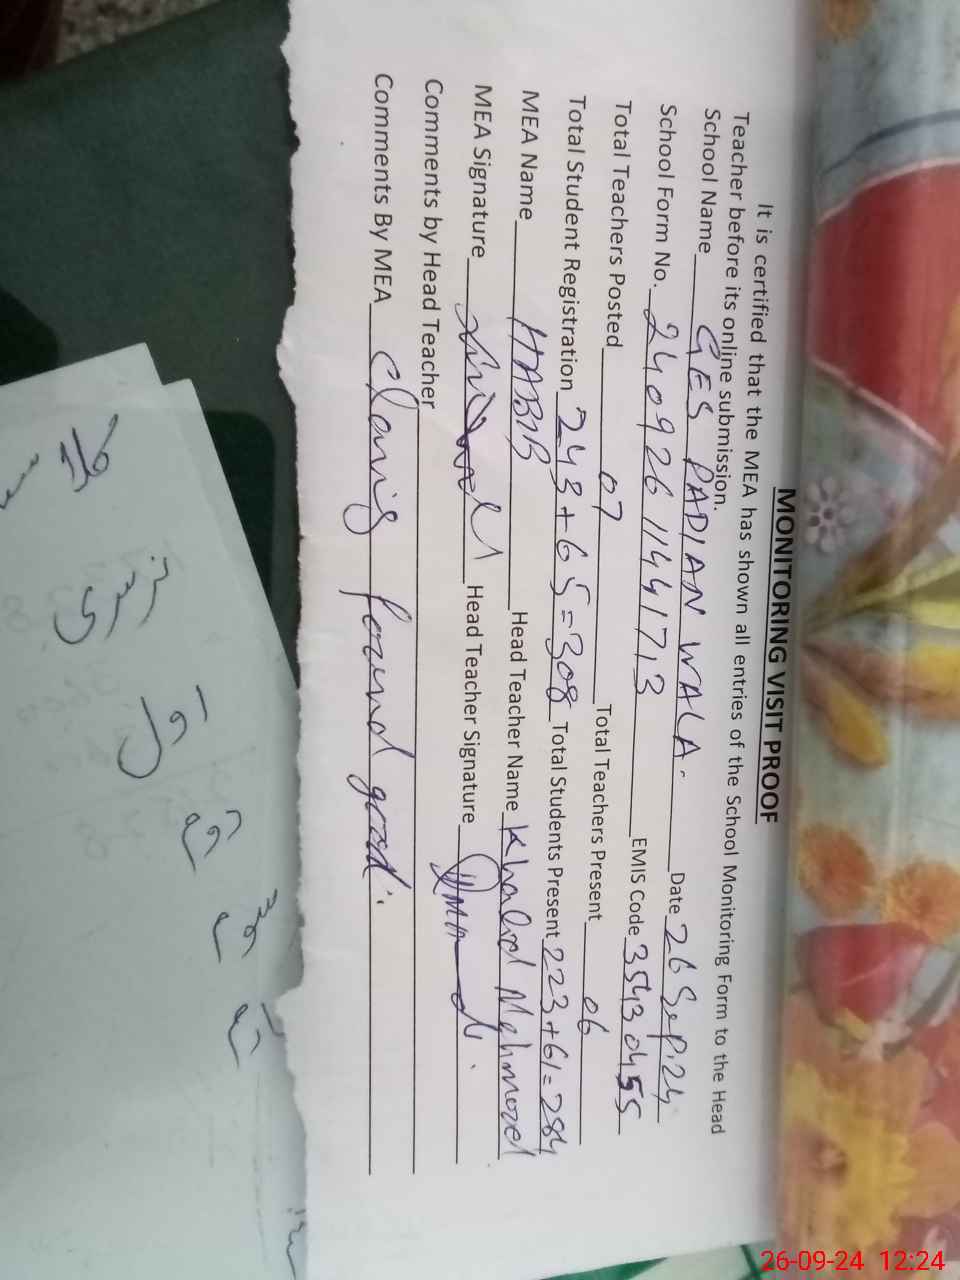 MONITORING VISIT PROOF
It is certified that the MEA has shown all entries of the School Monitoring Form to the Head
Teacher before its online submission.
School Name GES PADIAN WALA. Date 26 Sep.24
School Form No. 240926114417,3 EMIS Code 35430455
Total Teachers Posted 07 Total Teachers Present 06
Total Student Registration 243+65=308 Total Students Present 223+61=284
MEA Name HABIB Head Teacher Name Khalid Mehmood
MEA Signature Head Teacher Signature
Comments by Head Teacher
Comments By MEA Claning found good.
نرسری
اول
دوم
سوم
26-09-24 12:24